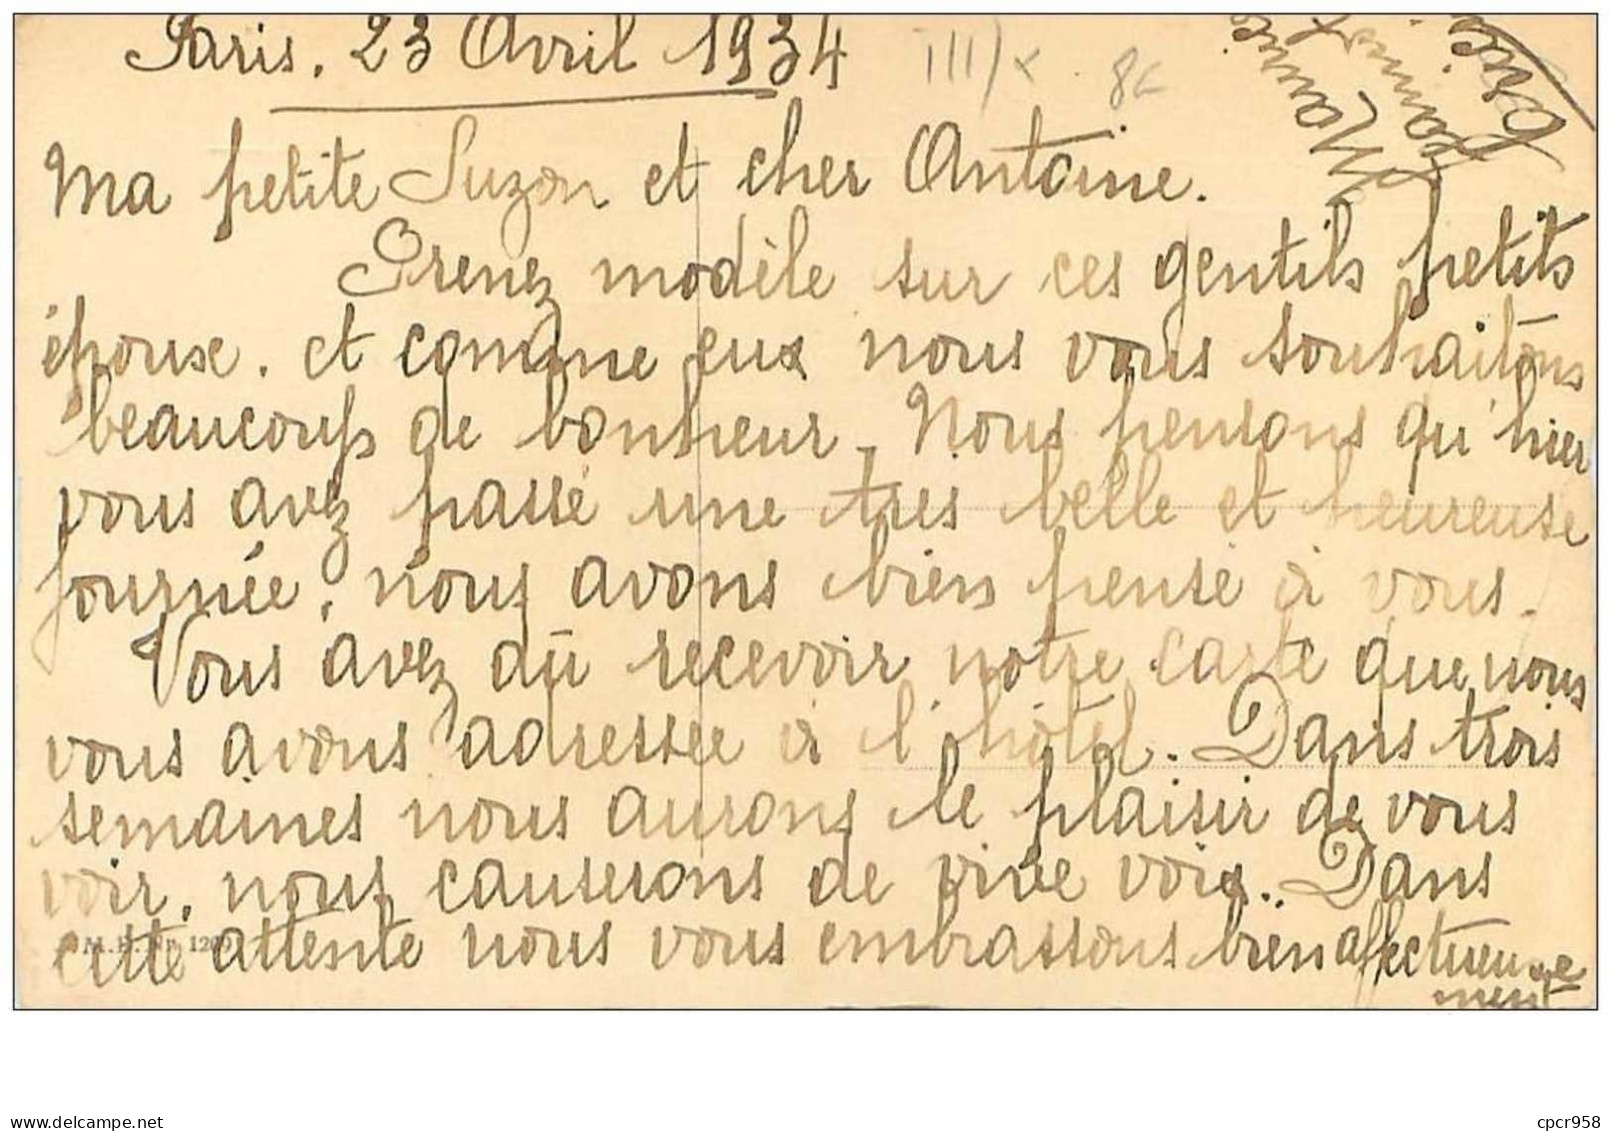 Paris, 23 Avril 1934
III)x . 86
Ma petite Suzon et cher Antoine.
Prenez modèle sur ces gentils petits
épouse. et comme eux nous vous souhaitons
beaucoup de bonheur. Nous pensons qu'hier
vous avez passé une très belle et heureuse
journée, nous avons bien pensé à vous.
Vous avez dû recevoir notre carte que nous
vous avons adressée à l'hôtel. Dans trois
semaines nous aurons le plaisir de vous
voir, nous causerons de vive voix. Dans
cette attente nous vous embrassons bien affectueuse
ment
M. B. Nr. 120
delcampe.net
cpcr958